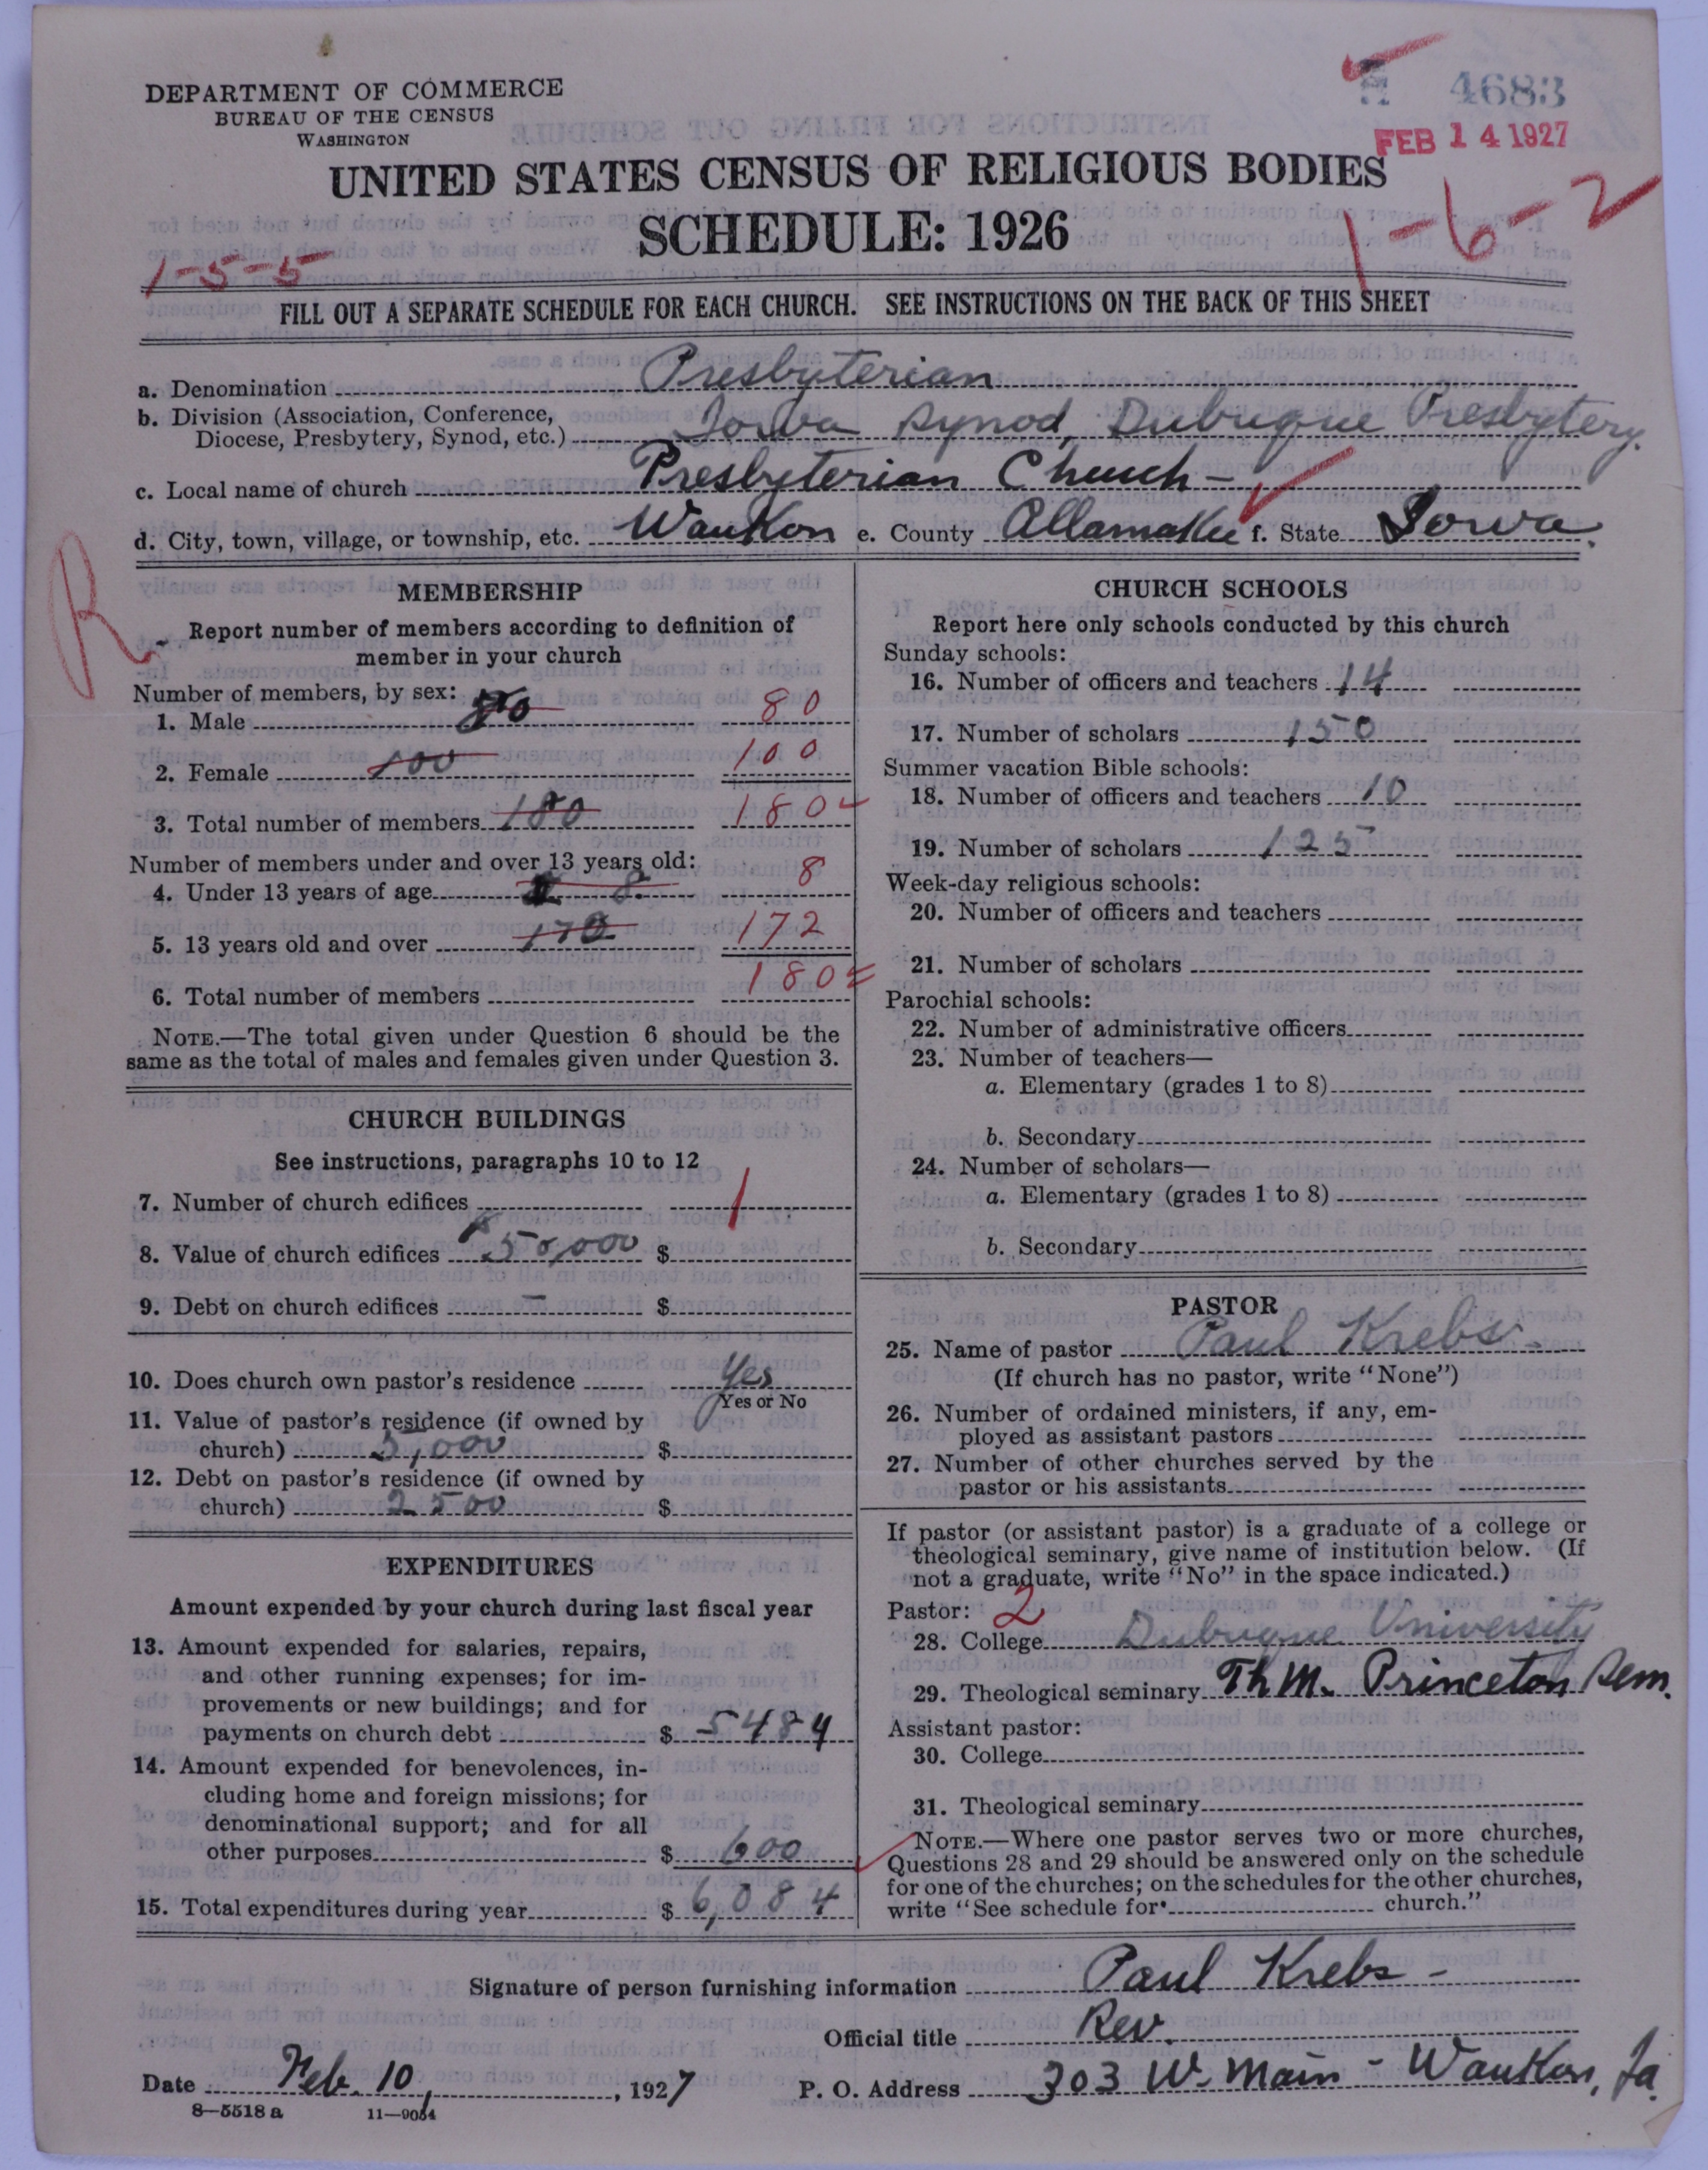 DEPARTMENT OF COMMERCE
BUREAU OF THE CENSUS
WASHINGTON
4683
FEB 14 1927
UNITED STATES CENSUS OF RELIGIOUS BODIES
SCHEDULE: 1926
1-5-5
1-6-2
FILL OUT A SEPARATE SCHEDULE FOR EACH CHURCH. SEE INSTRUCTIONS ON THE BACK OF THIS SHEET
a. Denomination Presbyterian
b. Division (Association, Conference,
Diocese, Presbytery, Synod, etc.) Iowa Synod, Dubuque Presbytery.
c. Local name of church Presbyterian Church -
d. City, town, village, or township, etc. Waukon e. County Allamakee f. State Iowa.
R
MEMBERSHIP
Report number of members according to definition of
member in your church
Number of members, by sex:
1. Male 80 80
2. Female 100 100
3. Total number of members 180 180
Number of members under and over 13 years old:
4. Under 13 years of age 8 8
5. 13 years old and over 172
6. Total number of members 180
NOTE.—The total given under Question 6 should be the
same as the total of males and females given under Question 3.
CHURCH BUILDINGS
See instructions, paragraphs 10 to 12
7. Number of church edifices 1
8. Value of church edifices 50,000 $
9. Debt on church edifices — $
10. Does church own pastor's residence Yes
Yes or No
11. Value of pastor's residence (if owned by
church) 5,000 $
12. Debt on pastor's residence (if owned by
church) 2500 $
EXPENDITURES
Amount expended by your church during last fiscal year
13. Amount expended for salaries, repairs,
and other running expenses; for im-
provements or new buildings; and for
payments on church debt $ 5484
14. Amount expended for benevolences, in-
cluding home and foreign missions; for
denominational support; and for all
other purposes $ 600
15. Total expenditures during year $ 6,084
CHURCH SCHOOLS
Report here only schools conducted by this church
Sunday schools:
16. Number of officers and teachers 14
17. Number of scholars 150
Summer vacation Bible schools:
18. Number of officers and teachers 10
19. Number of scholars 125
Week-day religious schools:
20. Number of officers and teachers
21. Number of scholars
Parochial schools:
22. Number of administrative officers
23. Number of teachers—
a. Elementary (grades 1 to 8)
b. Secondary
24. Number of scholars—
a. Elementary (grades 1 to 8)
b. Secondary
PASTOR
25. Name of pastor Paul Krebs.
(If church has no pastor, write "None")
26. Number of ordained ministers, if any, em-
ployed as assistant pastors
27. Number of other churches served by the
pastor or his assistants
If pastor (or assistant pastor) is a graduate of a college or
theological seminary, give name of institution below. (If
not a graduate, write "No" in the space indicated.)
Pastor: 2
28. College Dubuque University
29. Theological seminary Th M. Princeton Sem.
Assistant pastor:
30. College
31. Theological seminary
NOTE.—Where one pastor serves two or more churches,
Questions 28 and 29 should be answered only on the schedule
for one of the churches; on the schedules for the other churches,
write "See schedule for church."
Signature of person furnishing information Paul Krebs -
Official title Rev.
Date Feb. 10, 1927 P. O. Address 303 W. Main - Waukon, Ia.
8—5518 a 11—9064